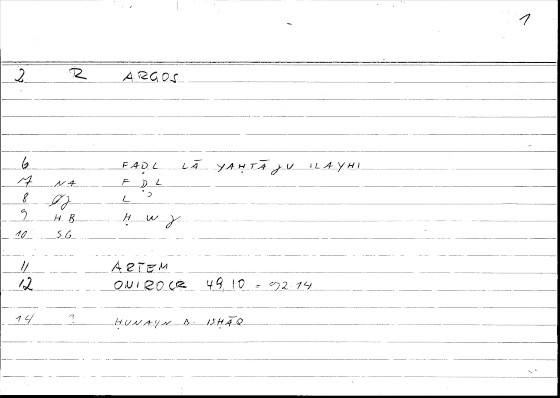 1
2 R ARGOS
6 FAḌL LĀ YAḤTĀJU ILAYHI
7 NA F Ḍ L
8 ØJ L ʾ
9 HB Ḥ W J
10 SG
11 ARTEM
12 ONIROCR 49,10 = 92 14
14 ḤUNAYN B. ISḤĀQ